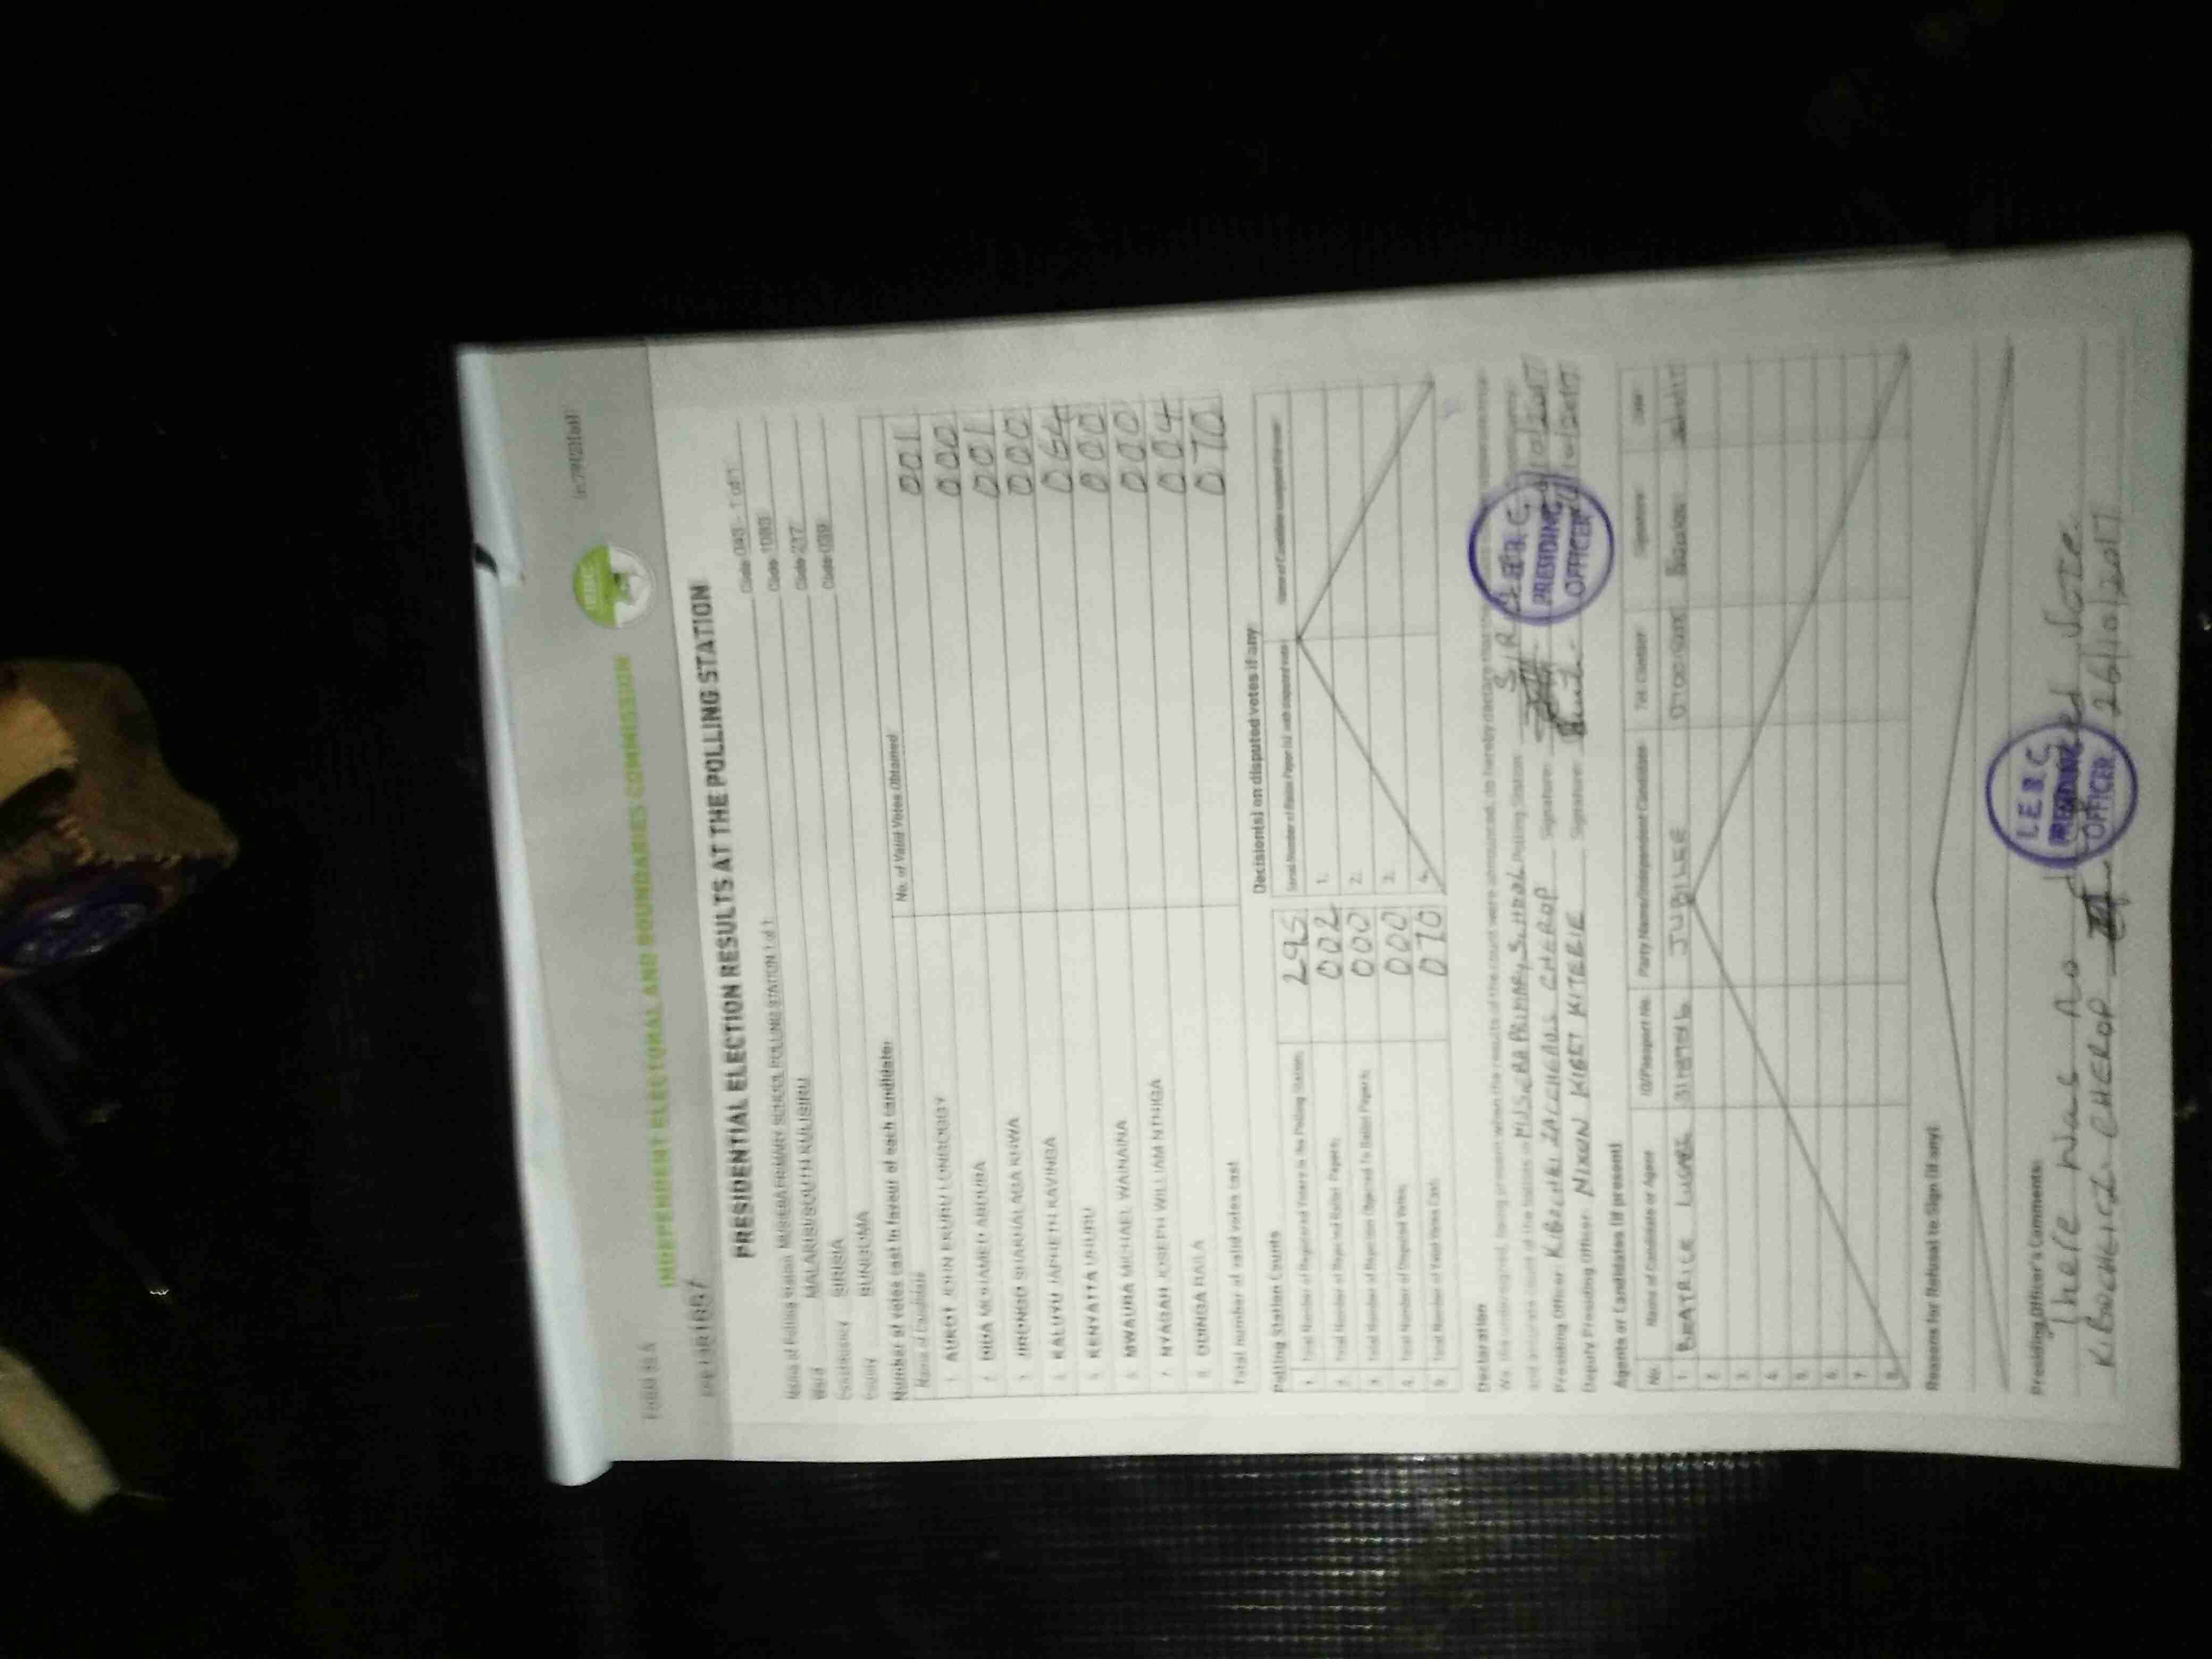 FORM 34A
INDEPENDENT ELECTORAL AND BOUNDARIES COMMISSION
IEBC
PRESIDENTIAL ELECTION RESULTS AT THE POLLING STATION
Name of Polling Station PRIMARY SCHOOL POLLING STATION 1 of 1 Code 043 - 1 of 1
Ward MALAKISI/SOUTH KULISIRU Code 1083
Constituency SIRISIA Code 217
County BUNGOMA Code 039
Number of votes cast in favour of each candidate:
Name of Candidate No. of Valid Votes Obtained
1. AUKOT JOHN EKURU LONGOGGY 001
2. DIDA MOHAMED ABDUBA 000
3. JIRONGO SHAKHALAGA KHWA 001
4. KALUYU JAPHETH KAVINGA 000
5. KENYATTA UHURU 064
6. MWAURA MICHAEL WAINAINA 000
7. NYAGAH JOSEPH WILLIAM NTHIGA 000
8. ODINGA RAILA 004
Total number of valid votes cast 070
Polling Station Counts
1. Total Number of Registered Voters in the Polling Station 295
2. Total Number of Rejected Ballot Papers 002
3. Total Number of Rejection Objected To Ballot Papers 000
4. Total Number of Disputed Votes 000
5. Total Number of Valid Votes Cast 070
Decision(s) on disputed votes if any
1.
2.
3.
4.
Declaration
We, the undersigned, being present when the results of the count were announced, do hereby declare
PRIMARY SCHOOL Polling Station
Presiding Officer CHEROP Signature
Deputy Presiding Officer NIXON KIBET KITEBIE Signature
I.E.B.C
PRESIDING
OFFICER
Agents or Candidates (if present)
No. Name of Candidate or Agent ID/Passport No. Party Name/Independent Candidate Tel. Contact Signature Date
1. BEATRICE JUBILEE
2.
3.
4.
5.
6.
7.
8.
Reasons for Refusal to Sign (if any)
Presiding Officer's Comments:
There was no Vote.
CHEROP 26/10/2017
I.E.B.C
PRESIDING
OFFICER